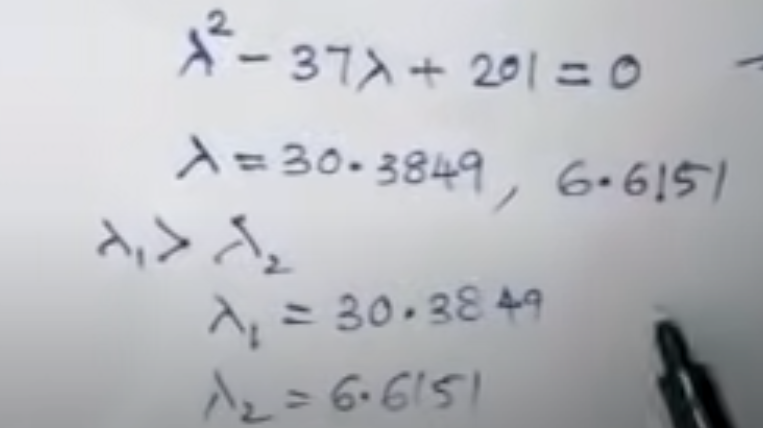 λ² - 37λ + 201 = 0
λ = 30.3849, 6.6151
λ₁ > λ₂
λ₁ = 30.3849
λ₂ = 6.6151